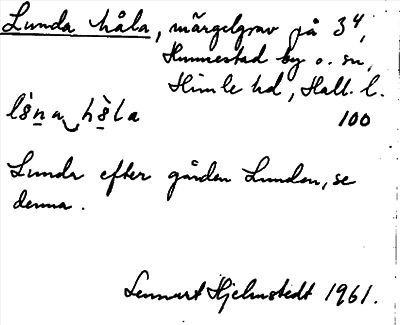 Lunda håla, märgelgrav på 3⁴,
Hunnestad by o. sn,
Himle hd, Hall. l.
100
Lunda efter gården Lunden, se
denna.
Lennart Hjelmstedt 1961.